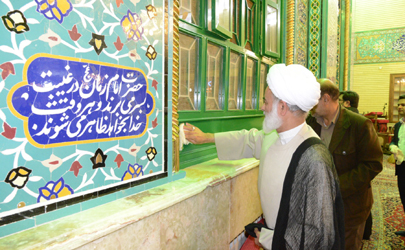 حضرت امام زمان در غیبت
بسر می‌برند و هر وقت
خدا بخواهد ظاهر می‌شوند